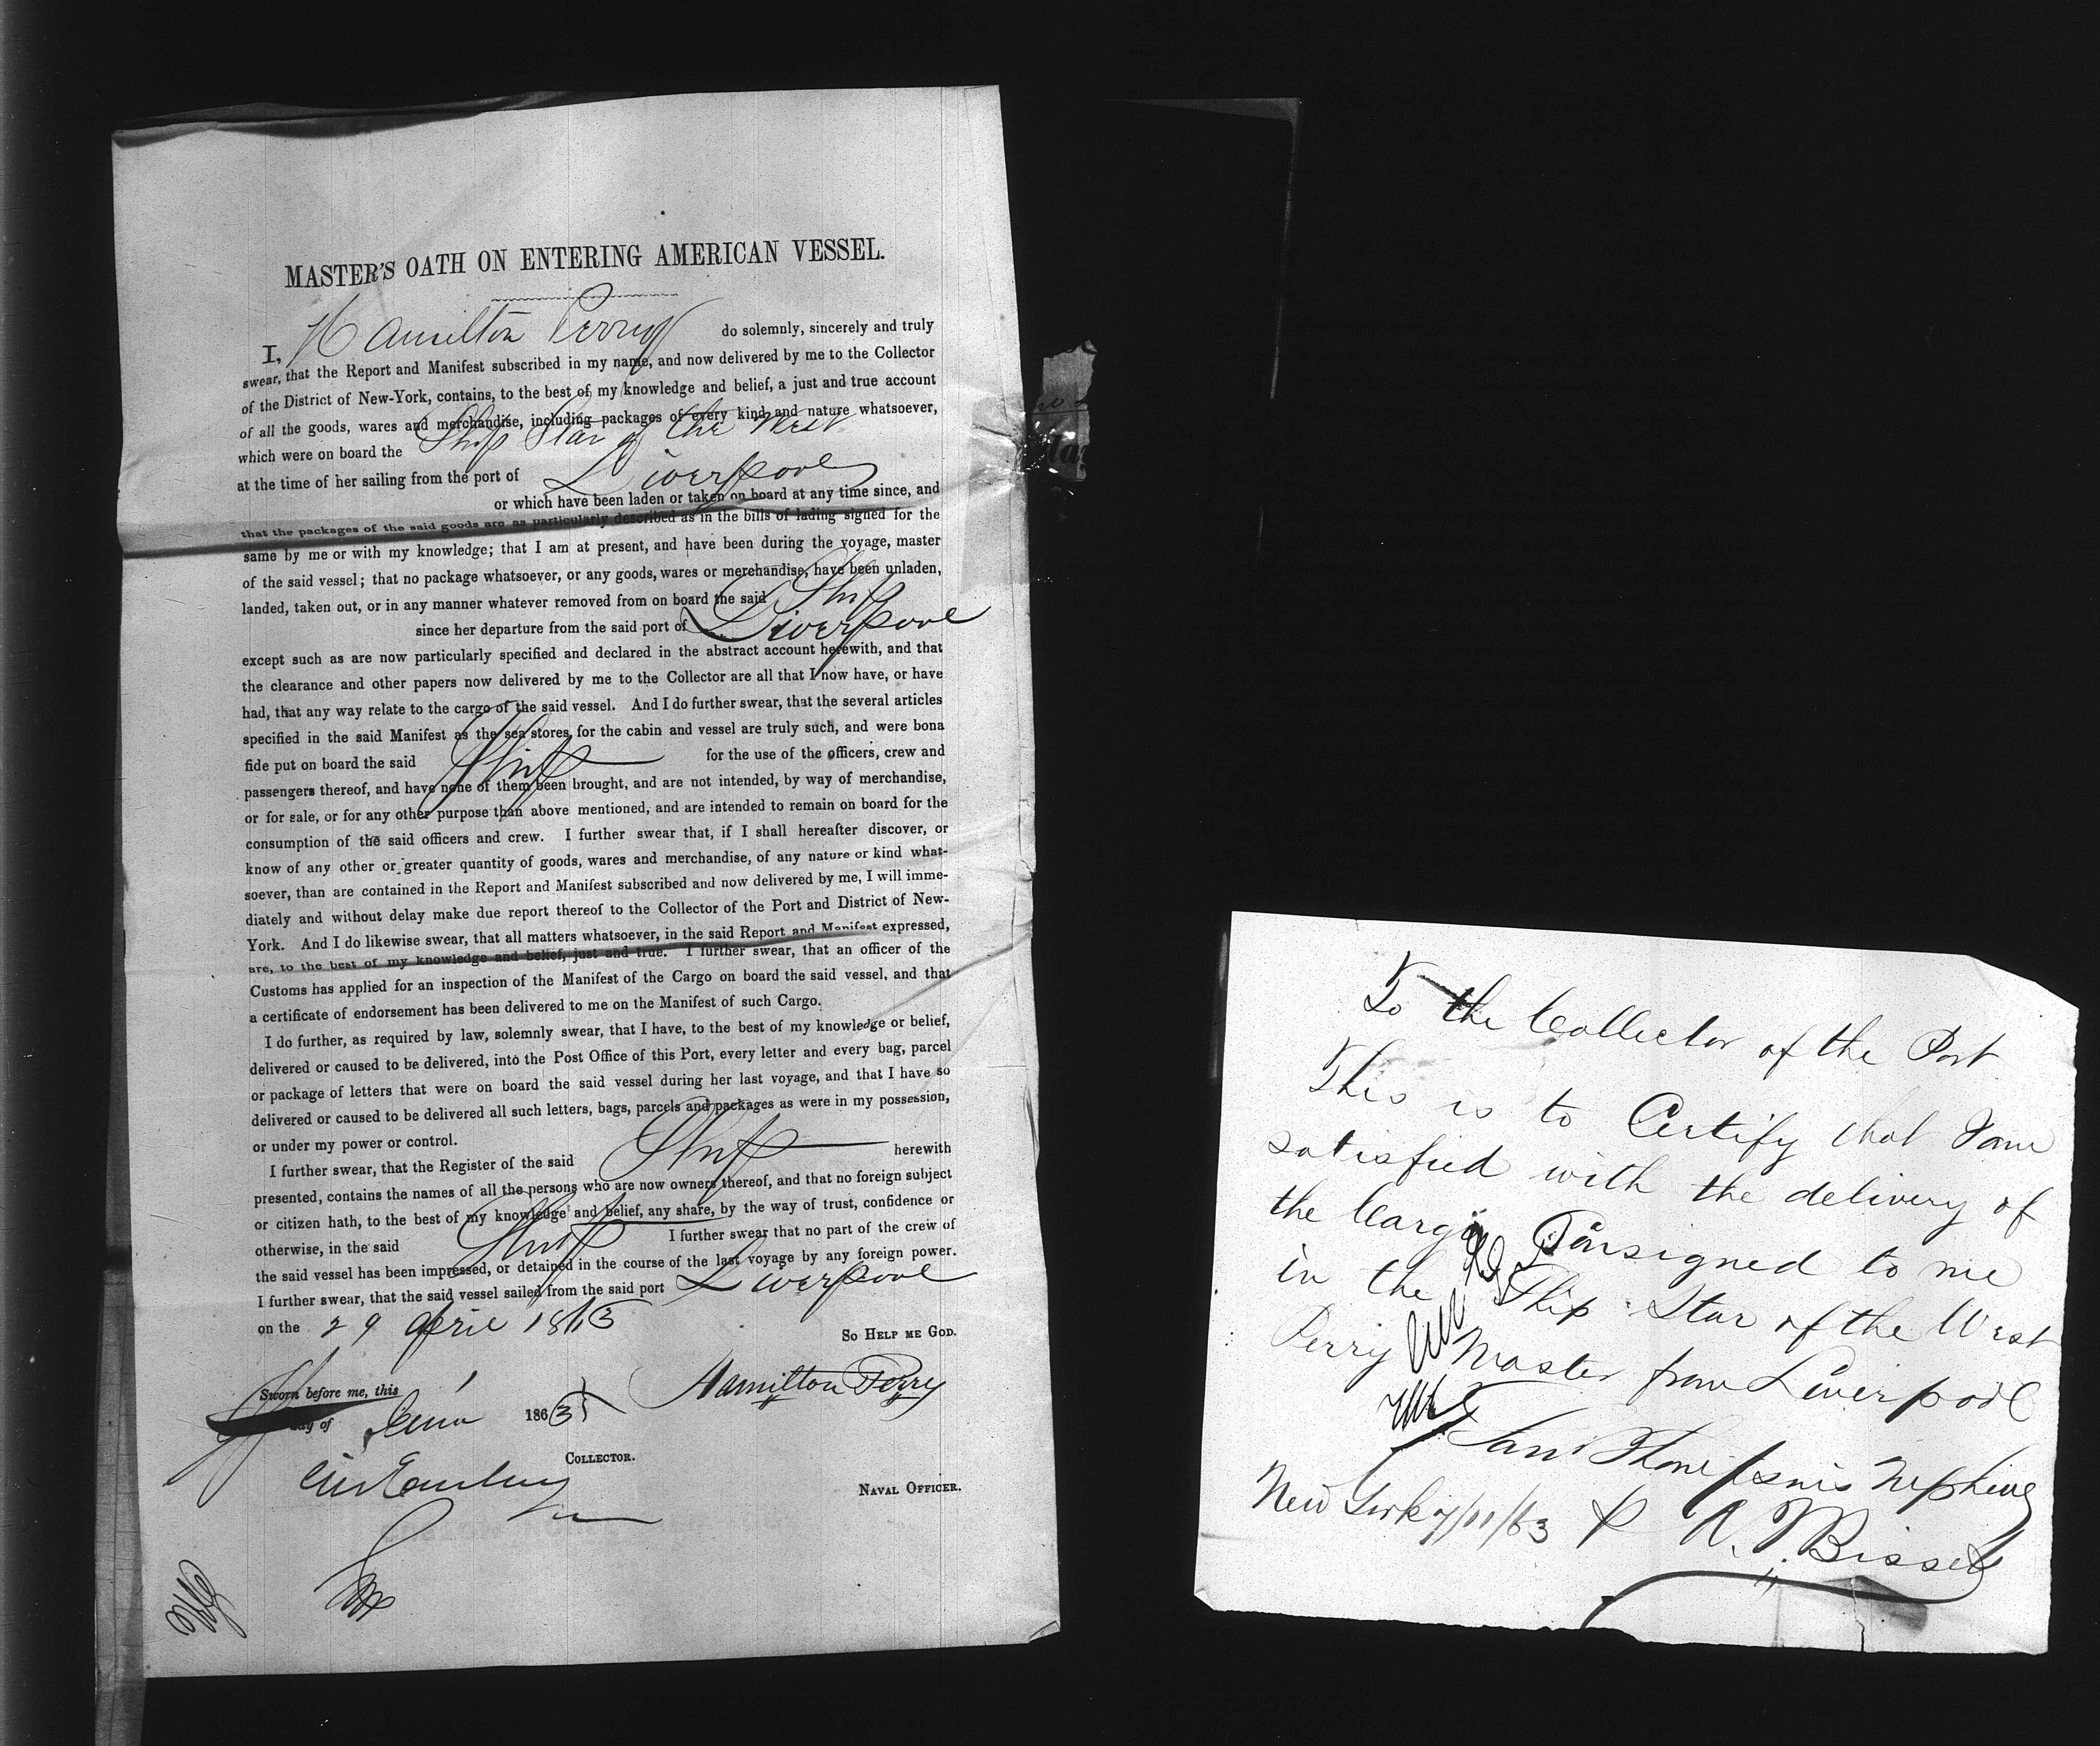 MASTER'S OATH ON ENTERING AMERICAN VESSEL.
I, Hamilton Perry do solemnly, sincerely and truly
swear, that the Report and Manifest subscribed in my name, and now delivered by me to the Collector
of the District of New-York, contains, to the best of my knowledge and belief, a just and true account
of all the goods, wares and merchandise, including packages of every kind and nature whatsoever,
which were on board the Ship Star of the West
at the time of her sailing from the port of Liverpool
or which have been laden or taken on board at any time since, and
that the packages of the said goods are as particularly described as in the bills of lading signed for the
same by me or with my knowledge; that I am at present, and have been during the voyage, master
of the said vessel; that no package whatsoever, or any goods, wares or merchandise, have been unladen,
landed, taken out, or in any manner whatever removed from on board the said Ship
since her departure from the said port of Liverpool
except such as are now particularly specified and declared in the abstract account herewith, and that
the clearance and other papers now delivered by me to the Collector are all that I now have, or have
had, that any way relate to the cargo of the said vessel. And I do further swear, that the several articles
specified in the said Manifest as the sea stores, for the cabin and vessel are truly such, and were bona
fide put on board the said Ship for the use of the officers, crew and
passengers thereof, and have none of them been brought, and are not intended, by way of merchandise,
or for sale, or for any other purpose than above mentioned, and are intended to remain on board for the
consumption of the said officers and crew. I further swear that, if I shall hereafter discover, or
know of any other or greater quantity of goods, wares and merchandise, of any nature or kind what-
soever, than are contained in the Report and Manifest subscribed and now delivered by me, I will imme-
diately and without delay make due report thereof to the Collector of the Port and District of New-
York. And I do likewise swear, that all matters whatsoever, in the said Report and Manifest expressed,
are, to the best of my knowledge and belief, just and true. I further swear, that an officer of the
Customs has applied for an inspection of the Manifest of the Cargo on board the said vessel, and that
a certificate of endorsement has been delivered to me on the Manifest of such Cargo.
I do further, as required by law, solemnly swear, that I have, to the best of my knowledge or belief,
delivered or caused to be delivered, into the Post Office of this Port, every letter and every bag, parcel
or package of letters that were on board the said vessel during her last voyage, and that I have so
delivered or caused to be delivered all such letters, bags, parcels and packages as were in my possession,
or under my power or control.
I further swear, that the Register of the said Ship herewith
presented, contains the names of all the persons who are now owners thereof, and that no foreign subject
or citizen hath, to the best of my knowledge and belief, any share, by the way of trust, confidence or
otherwise, in the said Ship I further swear that no part of the crew of
the said vessel has been impressed, or detained in the course of the last voyage by any foreign power.
I further swear, that the said vessel sailed from the said port Liverpool
on the 29 April 1863
So Help me God.
Sworn before me, this
day of June 1863 Hamilton Perry
Collector.
Naval Officer.
To the Collector of the Port
This is to Certify that I am
satisfied with the delivery of
the Cargo Consigned to me
in the Ship Star of the West
Perry Master from Liverpool
Sam Thompsons Nephew
New York 7/11/63 N. Bissel